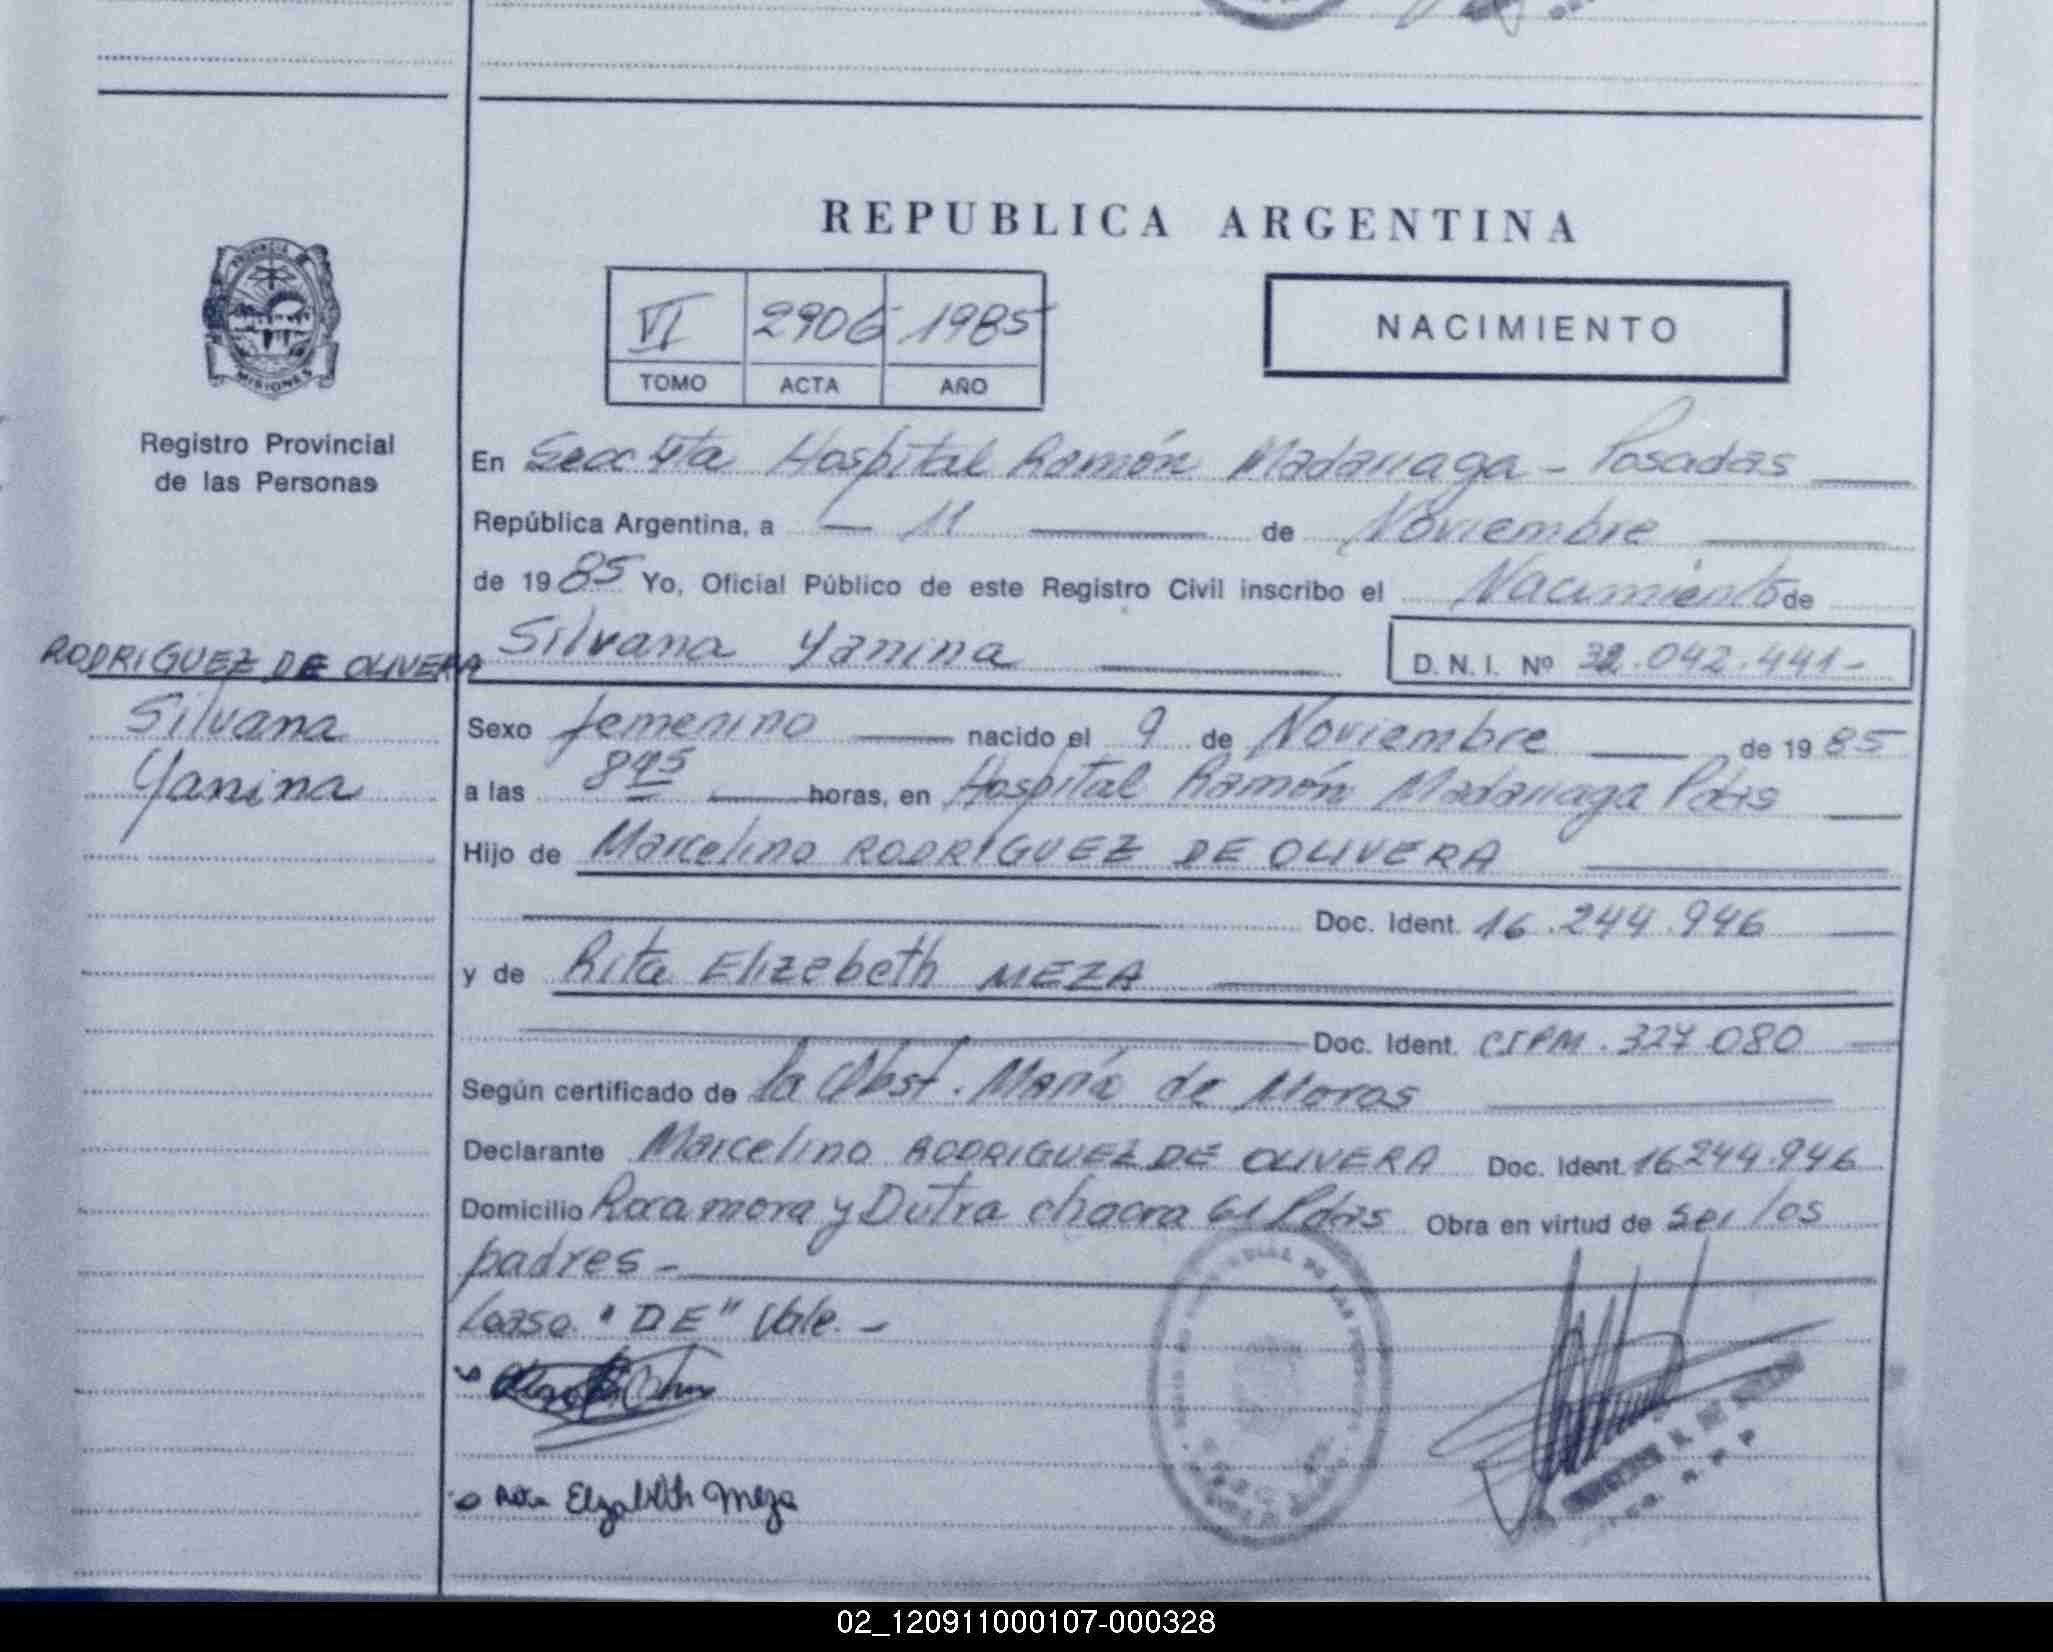 REPUBLICA ARGENTINA
PROVINCIA DE
MISIONES
VI 2906 1985
TOMO ACTA AÑO
NACIMIENTO
Registro Provincial
de las Personas
En Secc 4ta Hospital Ramón Madariaga - Posadas
República Argentina, a 11 de Noviembre
de 1985 Yo, Oficial Público de este Registro Civil inscribo el Nacimiento de
RODRIGUEZ DE OLIVERA
Silvana
Yanina
Silvana Yanina D. N. I. Nº 32.042.441-
Sexo femenino nacido el 9 de Noviembre de 1985
a las 845 horas, en Hospital Ramón Madariaga Pdas
Hijo de Marcelino RODRIGUEZ DE OLIVERA
Doc. Ident. 16.244.946
y de Rita Elizebeth MEZA
Doc. Ident. CIPM. 327.080
Según certificado de la Obst. María de Moras
Declarante Marcelino RODRIGUEZ DE OLIVERA Doc. Ident. 16244.946
Domicilio Rocamora y Dutra chacra 61 Pdas Obra en virtud de ser los
padres -
"DE" Vale. -
Rita Elizabeth Meza
02_120911000107-000328